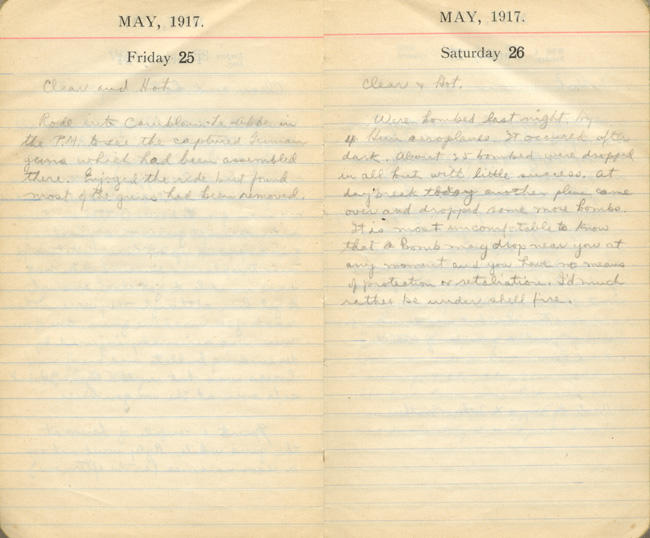 MAY, 1917.
Friday 25
Clear and Hot.
Rode into Camblain-l'Abbe in
the P.M. to see the captured German
guns which had been assembled
there. Enjoyed the ride but found
most of the guns had been removed.
MAY, 1917.
Saturday 26
Clear & Hot.
Were bombed last night by
4 Hun aeroplanes. It occured after
dark. About 25 bombs were dropped
in all but with little success. At
daybreak today another plane came
over and dropped some more bombs.
It is most uncomfortable to know
that a bomb may drop near you at
any moment and you have no means
of protection or retaliation. I'd much
rather be under shell fire.